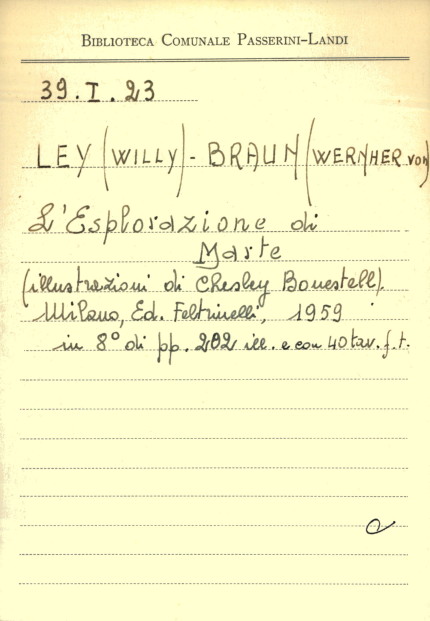 BIBLIOTECA COMUNALE PASSERINI-LANDI
39.I.23
LEY (WILLY) - BRAUN (WERNHER von)
L'Esplorazione di
Marte
(illustrazioni di Chesley Bonestell).
Milano, Ed. Feltrinelli, 1959
in 8° di pp. 202 ill. e con 40 tav. f.t.